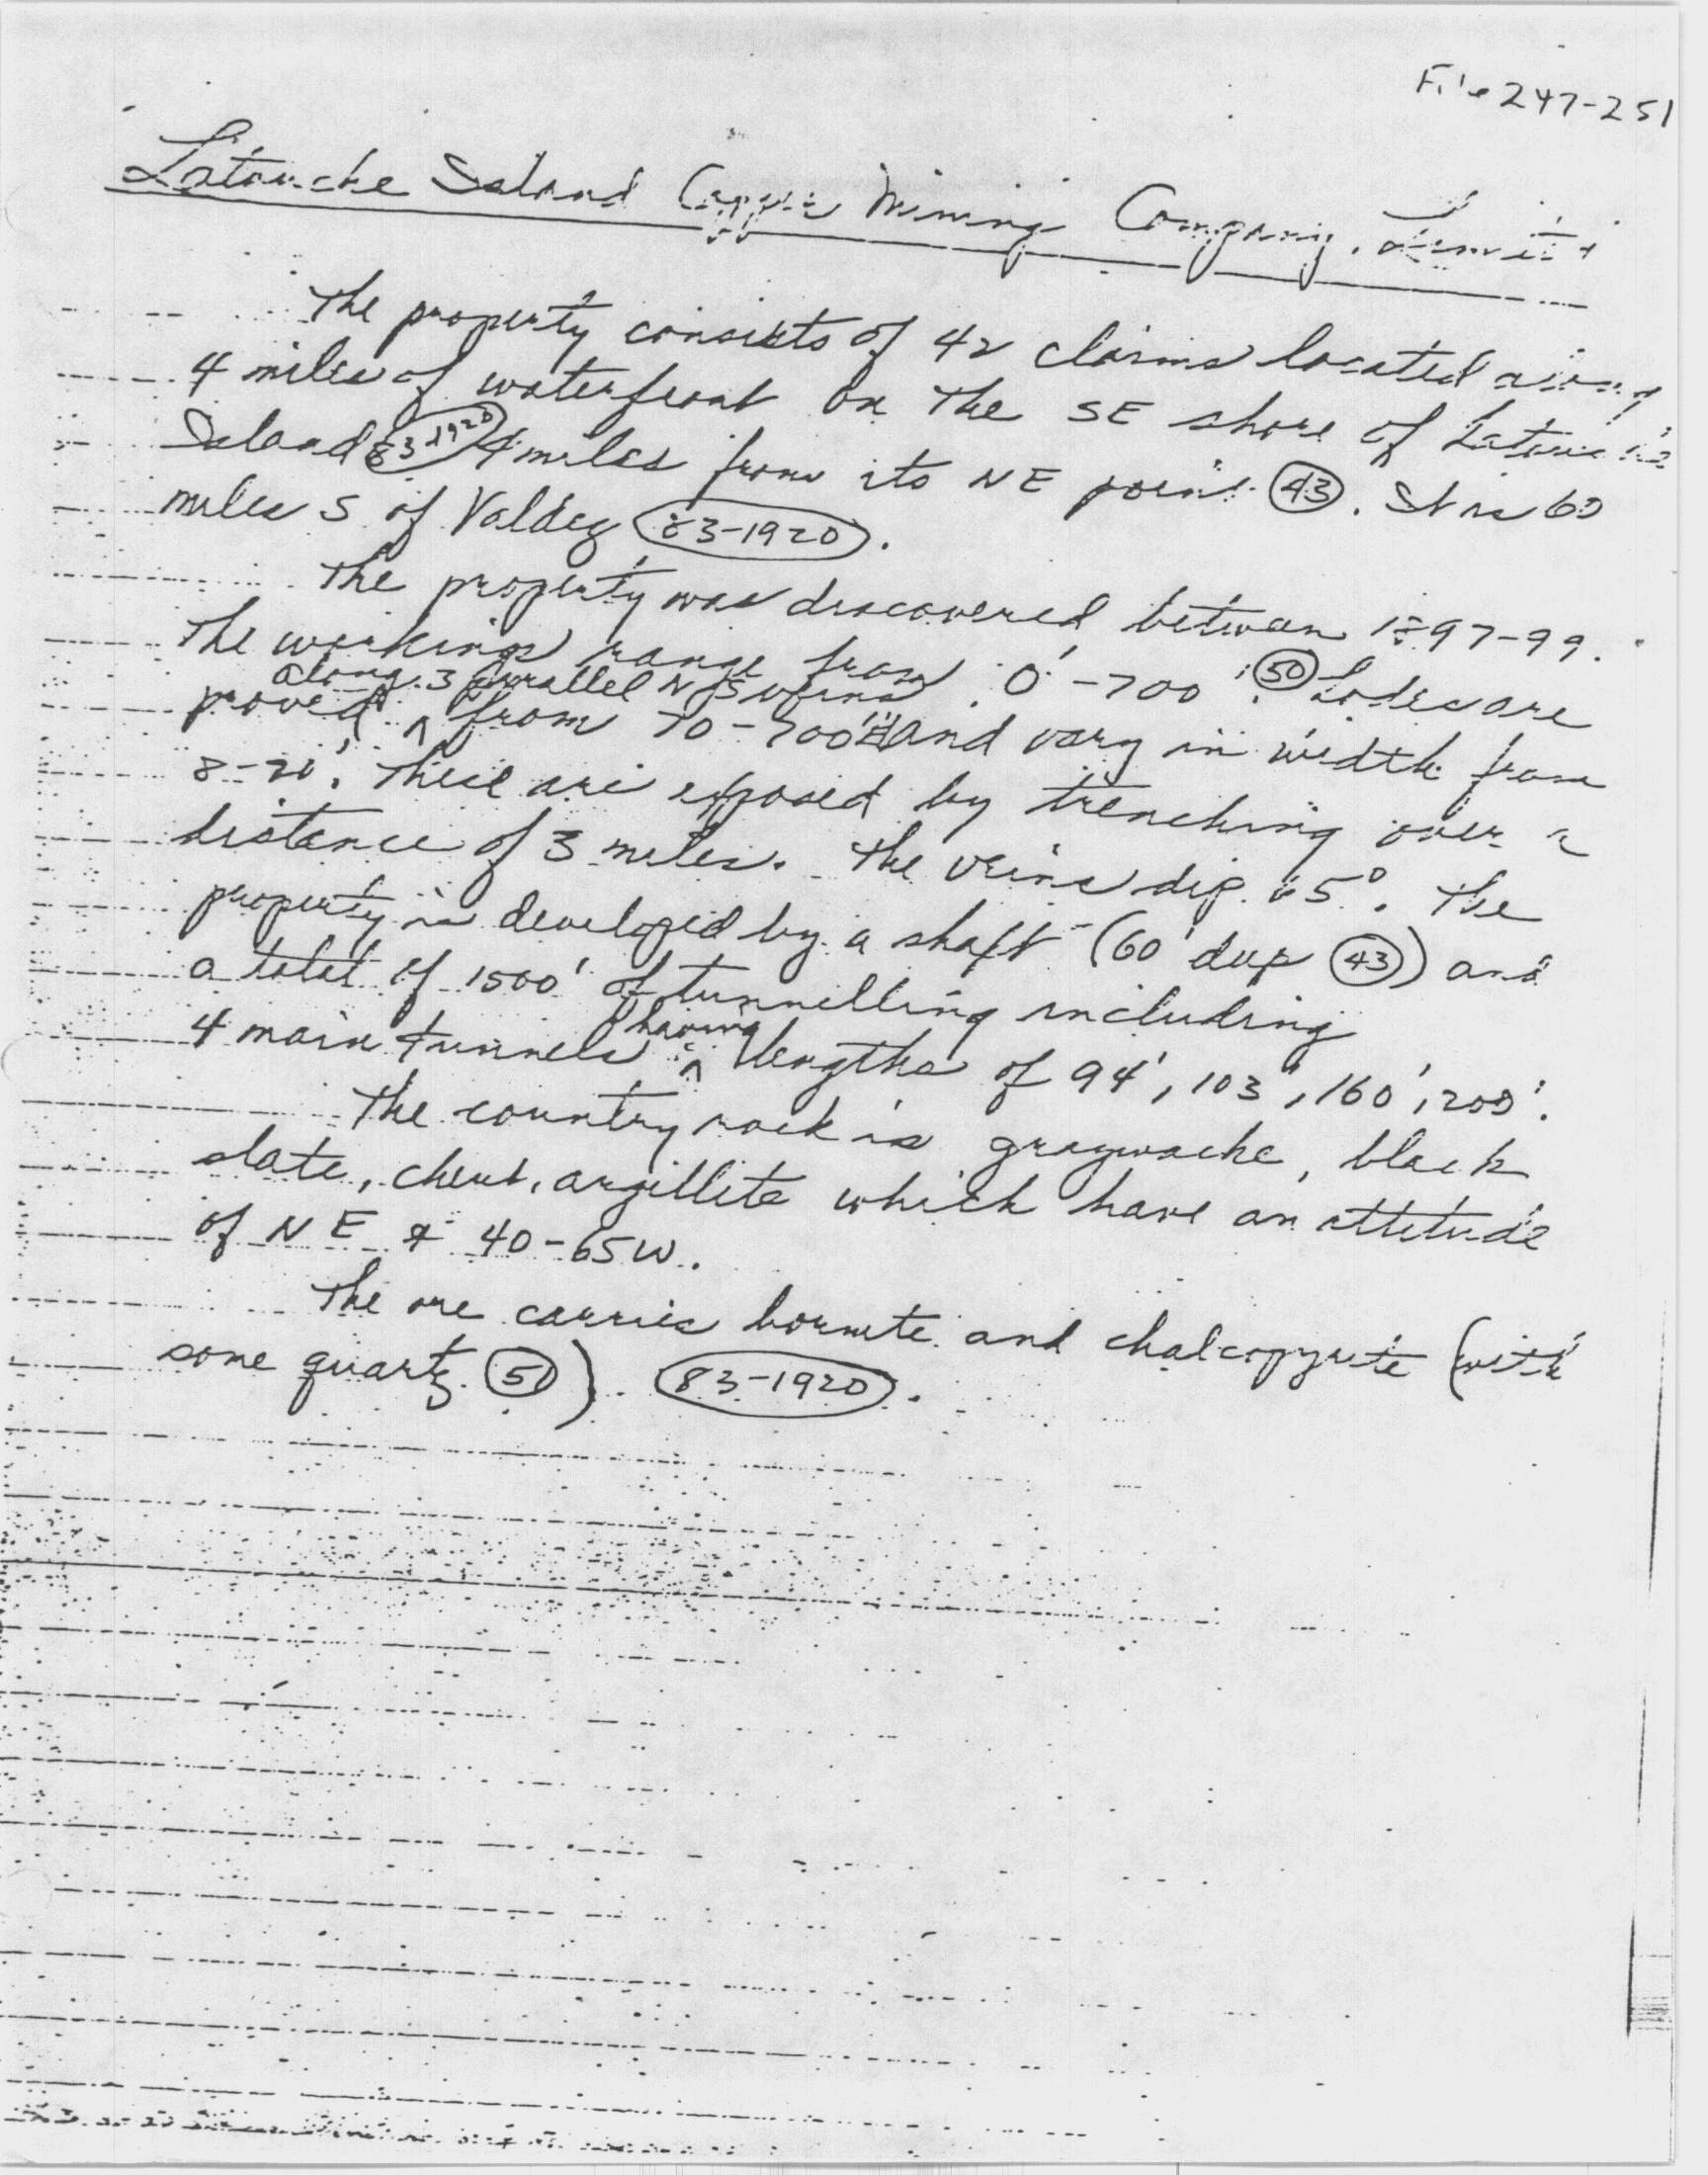 File 247-251
Latouche Island Copper Mining Company, Limited
The property consists of 42 claims located along
4 miles of waterfront on the SE shore of Latouche
Island (83-1920) 4 miles from its NE point (43). It is 60
miles S of Valdez (83-1920).
The property was discovered between 1897-99.
The workings range from 0'-700'. (50) Lodes are
along 3 parallel N S veins
proved ^ from 70-700' and vary in width from
8-20'. These are exposed by trenching over a
distance of 3 miles. The veins dip 65°. The
property is developed by a shaft (60' deep (43)) and
a total of 1500' of tunnelling including
having
4 main tunnels ^ lengths of 94', 103', 160', 200'.
The country rock is graywacke, black
slate, chert, argillite which have an attitude
of N E & 40-65W.
The ore carries bornite and chalcopyrite (with
some quartz (51)) (83-1920).